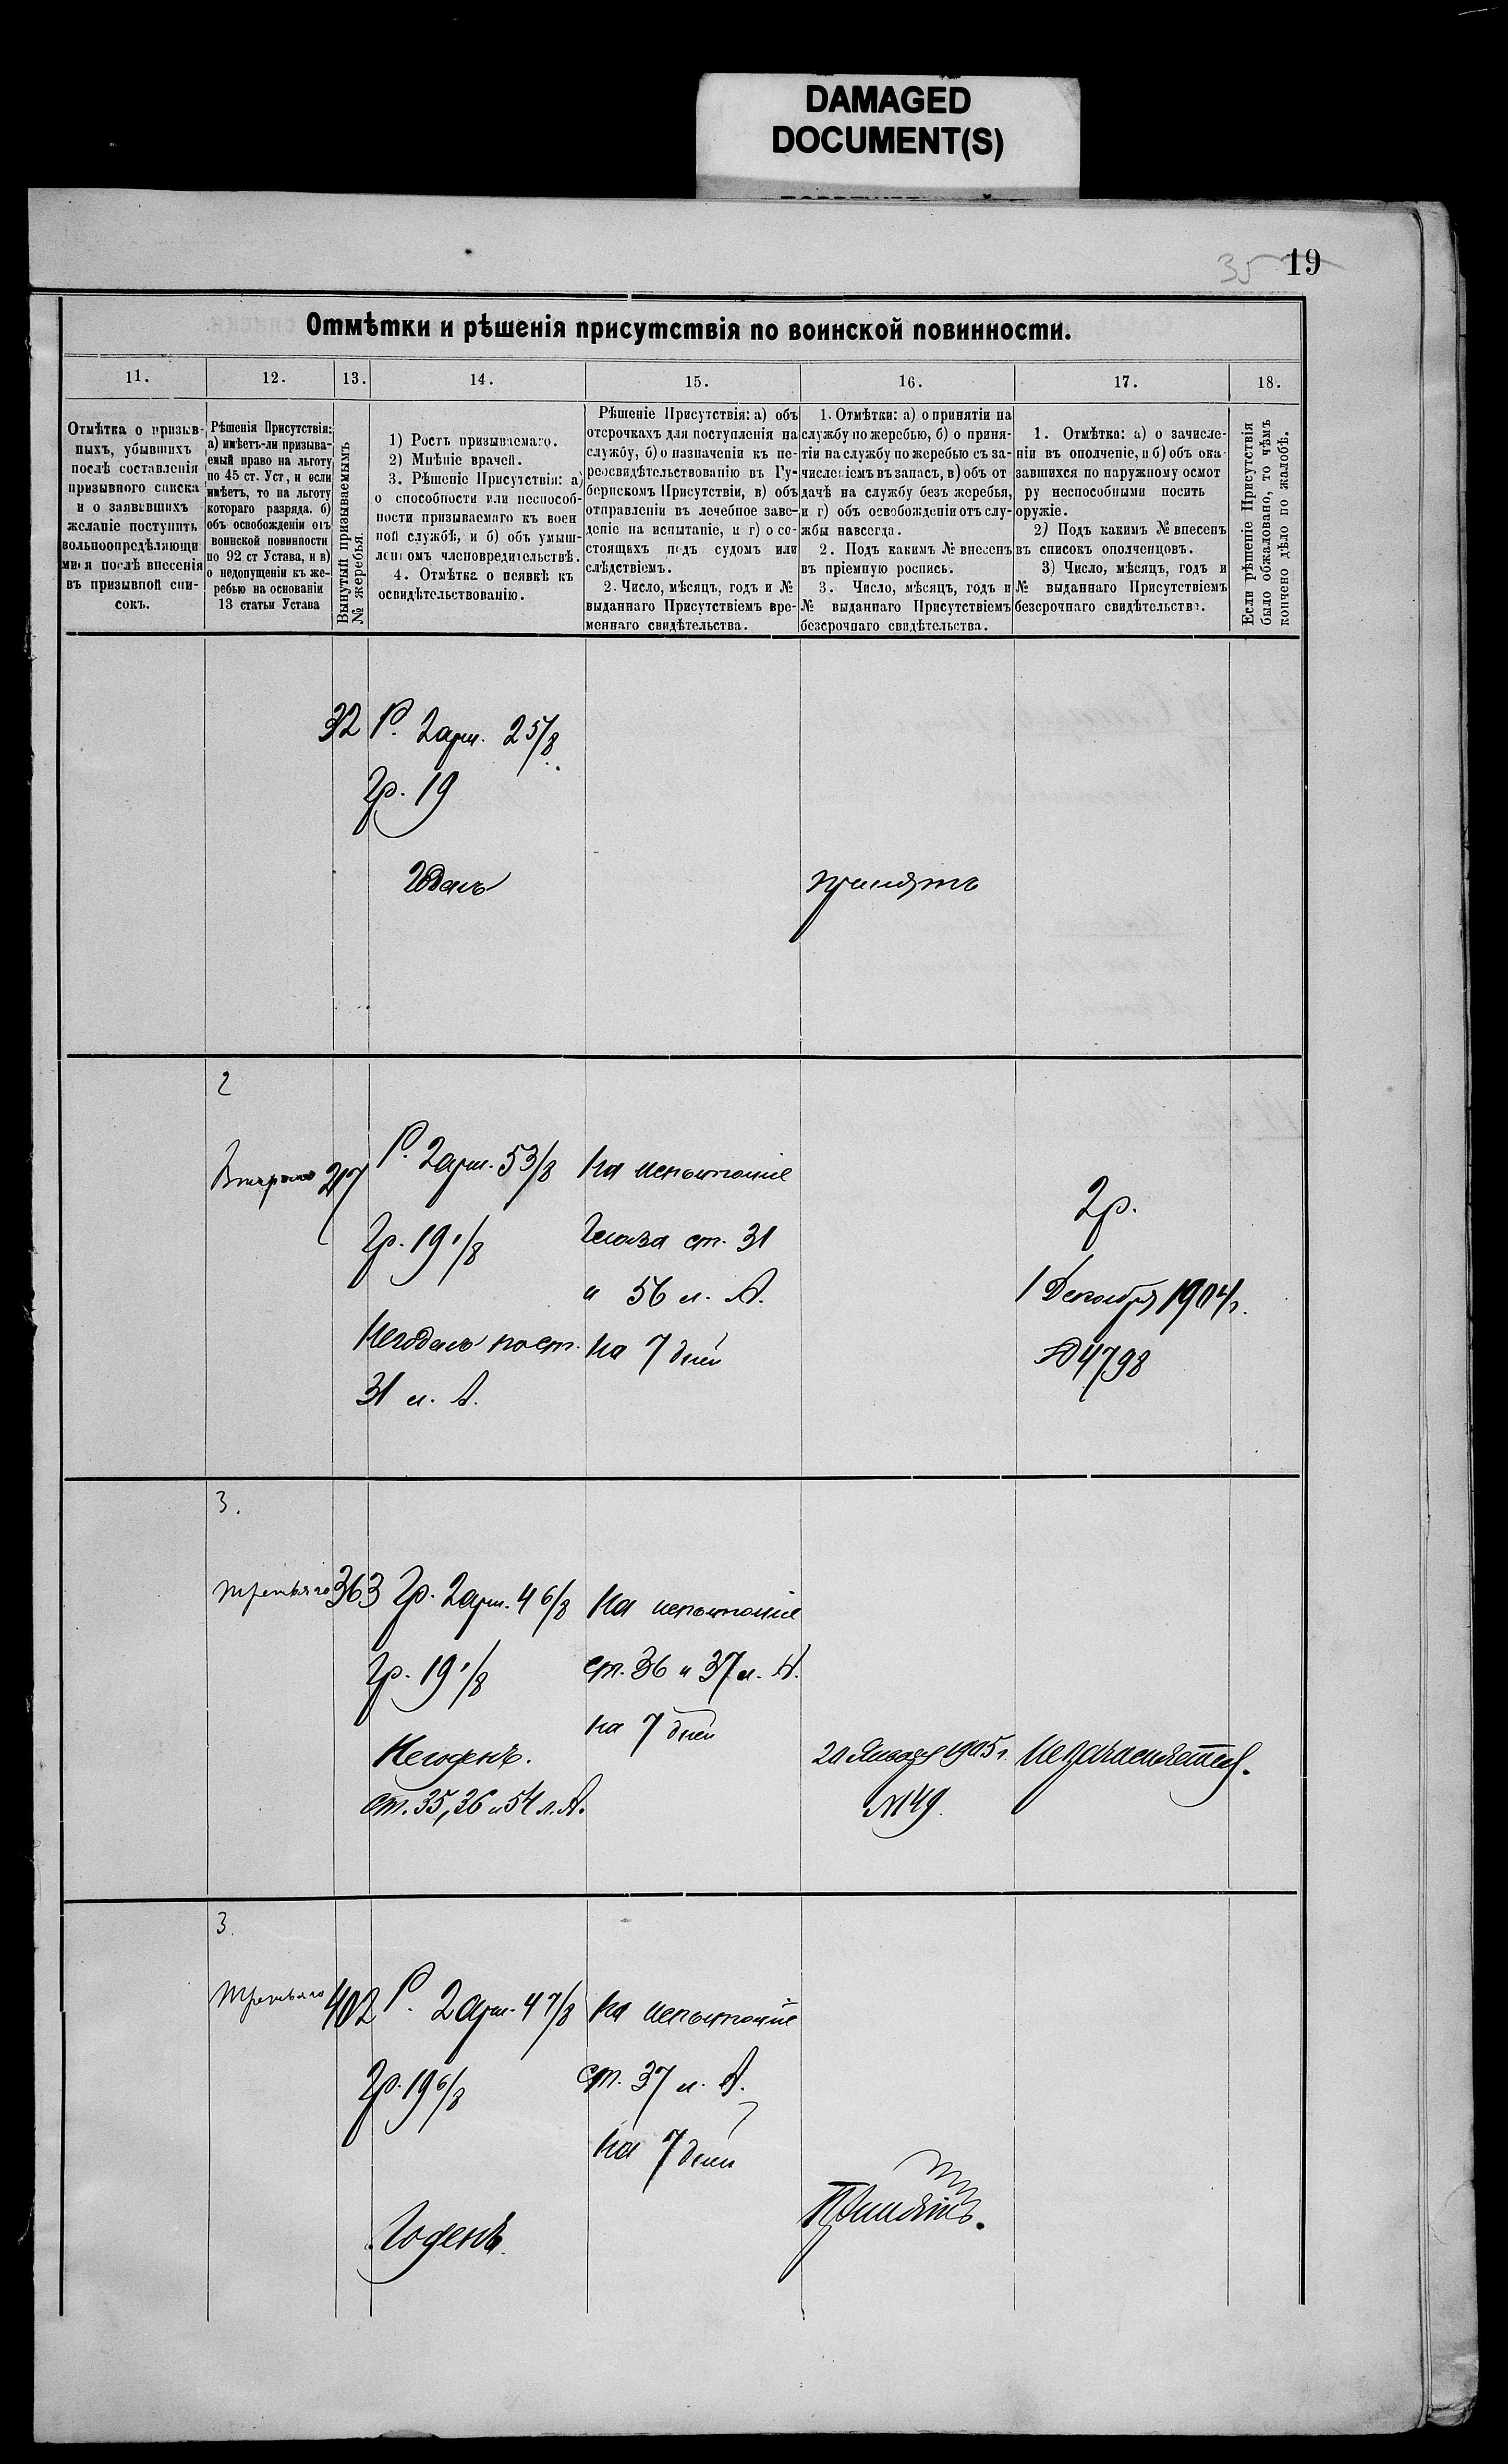 DAMAGED
DOCUMENT(S)
35 19
Отмѣтки и рѣшенія присутствія по воинской повинности.
11. 12. 13. 14. 15. 16. 17. 18.
Отмѣтка о призыв-
ныхъ, убывшихъ
послѣ составленія
призывного списка
и о заявившихъ
желаніе поступить
вольноопредѣляющи
мися послѣ внесенія
въ призывной спи-
сокъ.
Рѣшенія Присутствія:
а) имѣетъ-ли призыва-
емый право на льготу
по 45 ст. Уст, и если
имѣетъ, то на льготу
котораго разряда. б)
объ освобожденіи отъ
воинской повинности
по 92 ст Устава, и в)
о недопущеніи къ же-
ребью на основаніи
13 статьи Устава
Вынутый призываемымъ
№ жеребья.
1) Ростъ призываемаго.
2) Мнѣніе врачей.
3. Рѣшеніе Присутствія: а)
о способности или неспособ-
ности призываемаго къ воен
ной службѣ, и б) объ умыш-
ленномъ членовредительствѣ.
4. Отмѣтка о неявкѣ къ
освидѣтельствованію.
Рѣшеніе Присутствія: а) объ
отсрочкахъ для поступленія на
службу, б) о назначеніи къ пе-
реосвидѣтельствованію въ Гу-
бернскомъ Присутствіи, в) объ
отправленіи въ лечебное заве-
деніе на испытаніе, и г) о со-
стоящахъ подъ судомъ или
слѣдствіемъ.
2. Число, мѣсяцъ, годъ и №
выданнаго Присутствіемъ вре-
меннаго свидѣтельства.
1. Отмѣтки: а) о принятіи на
службу по жеребью, б) о приня-
тіи на службу по жеребью съ за-
численіемъ въ запасъ, в) объ от
дачѣ на службу безъ жеребья,
и г) объ освобожденіи отъ слу-
жбы навсегда.
2. Подъ какимъ № внесенъ
въ пріемную роспись.
3. Число, мѣсяцъ, годъ и
№ выданнаго Присутствіемъ
безсрочнаго свидѣтельства.
1. Отмѣтка: а) о зачисле-
ніи въ ополченіе, и б) объ ока
завшихся по наружному осмот
ру неспособными носить
оружіе.
2) Подъ какимъ № внесенъ
въ списокъ ополченцовъ.
3) Число, мѣсяцъ, годъ и
№ выданнаго Присутствіемъ
безсрочнаго свидѣтельства.
Если рѣшеніе Присутствія
было обжаловано, то чѣмъ
кончено дѣло по жалобѣ.
32 Р. 2 арш. 2 5/8
Гр. 19
Годенъ
принятъ
2
Второго 217
Р. 2 арш. 5 3/8
Гр. 19 1/8
Негоденъ по ст.
31 л. А.
На испытаніе
Глаза ст. 31
и 56 л. А.
на 7 дней
2р.
1 Декабря 1904 г.
№ 4798
3.
третьяго 363
Гр. 2 арш. 4 6/8
Гр. 19 1/8
Негоденъ.
ст. 35, 36 и 54 л. А.
На испытаніе
ст. 36 и 37 л. А.
на 7 дней
20 Января 1905 г.
№ 149.
Не зачисляется.
3.
Третьяго 402
Р. 2 арш. 4 7/8
Гр. 19 6/8
Годенъ.
на испытаніе
ст. 37 л. А.
на 7 дней
Принятъ.